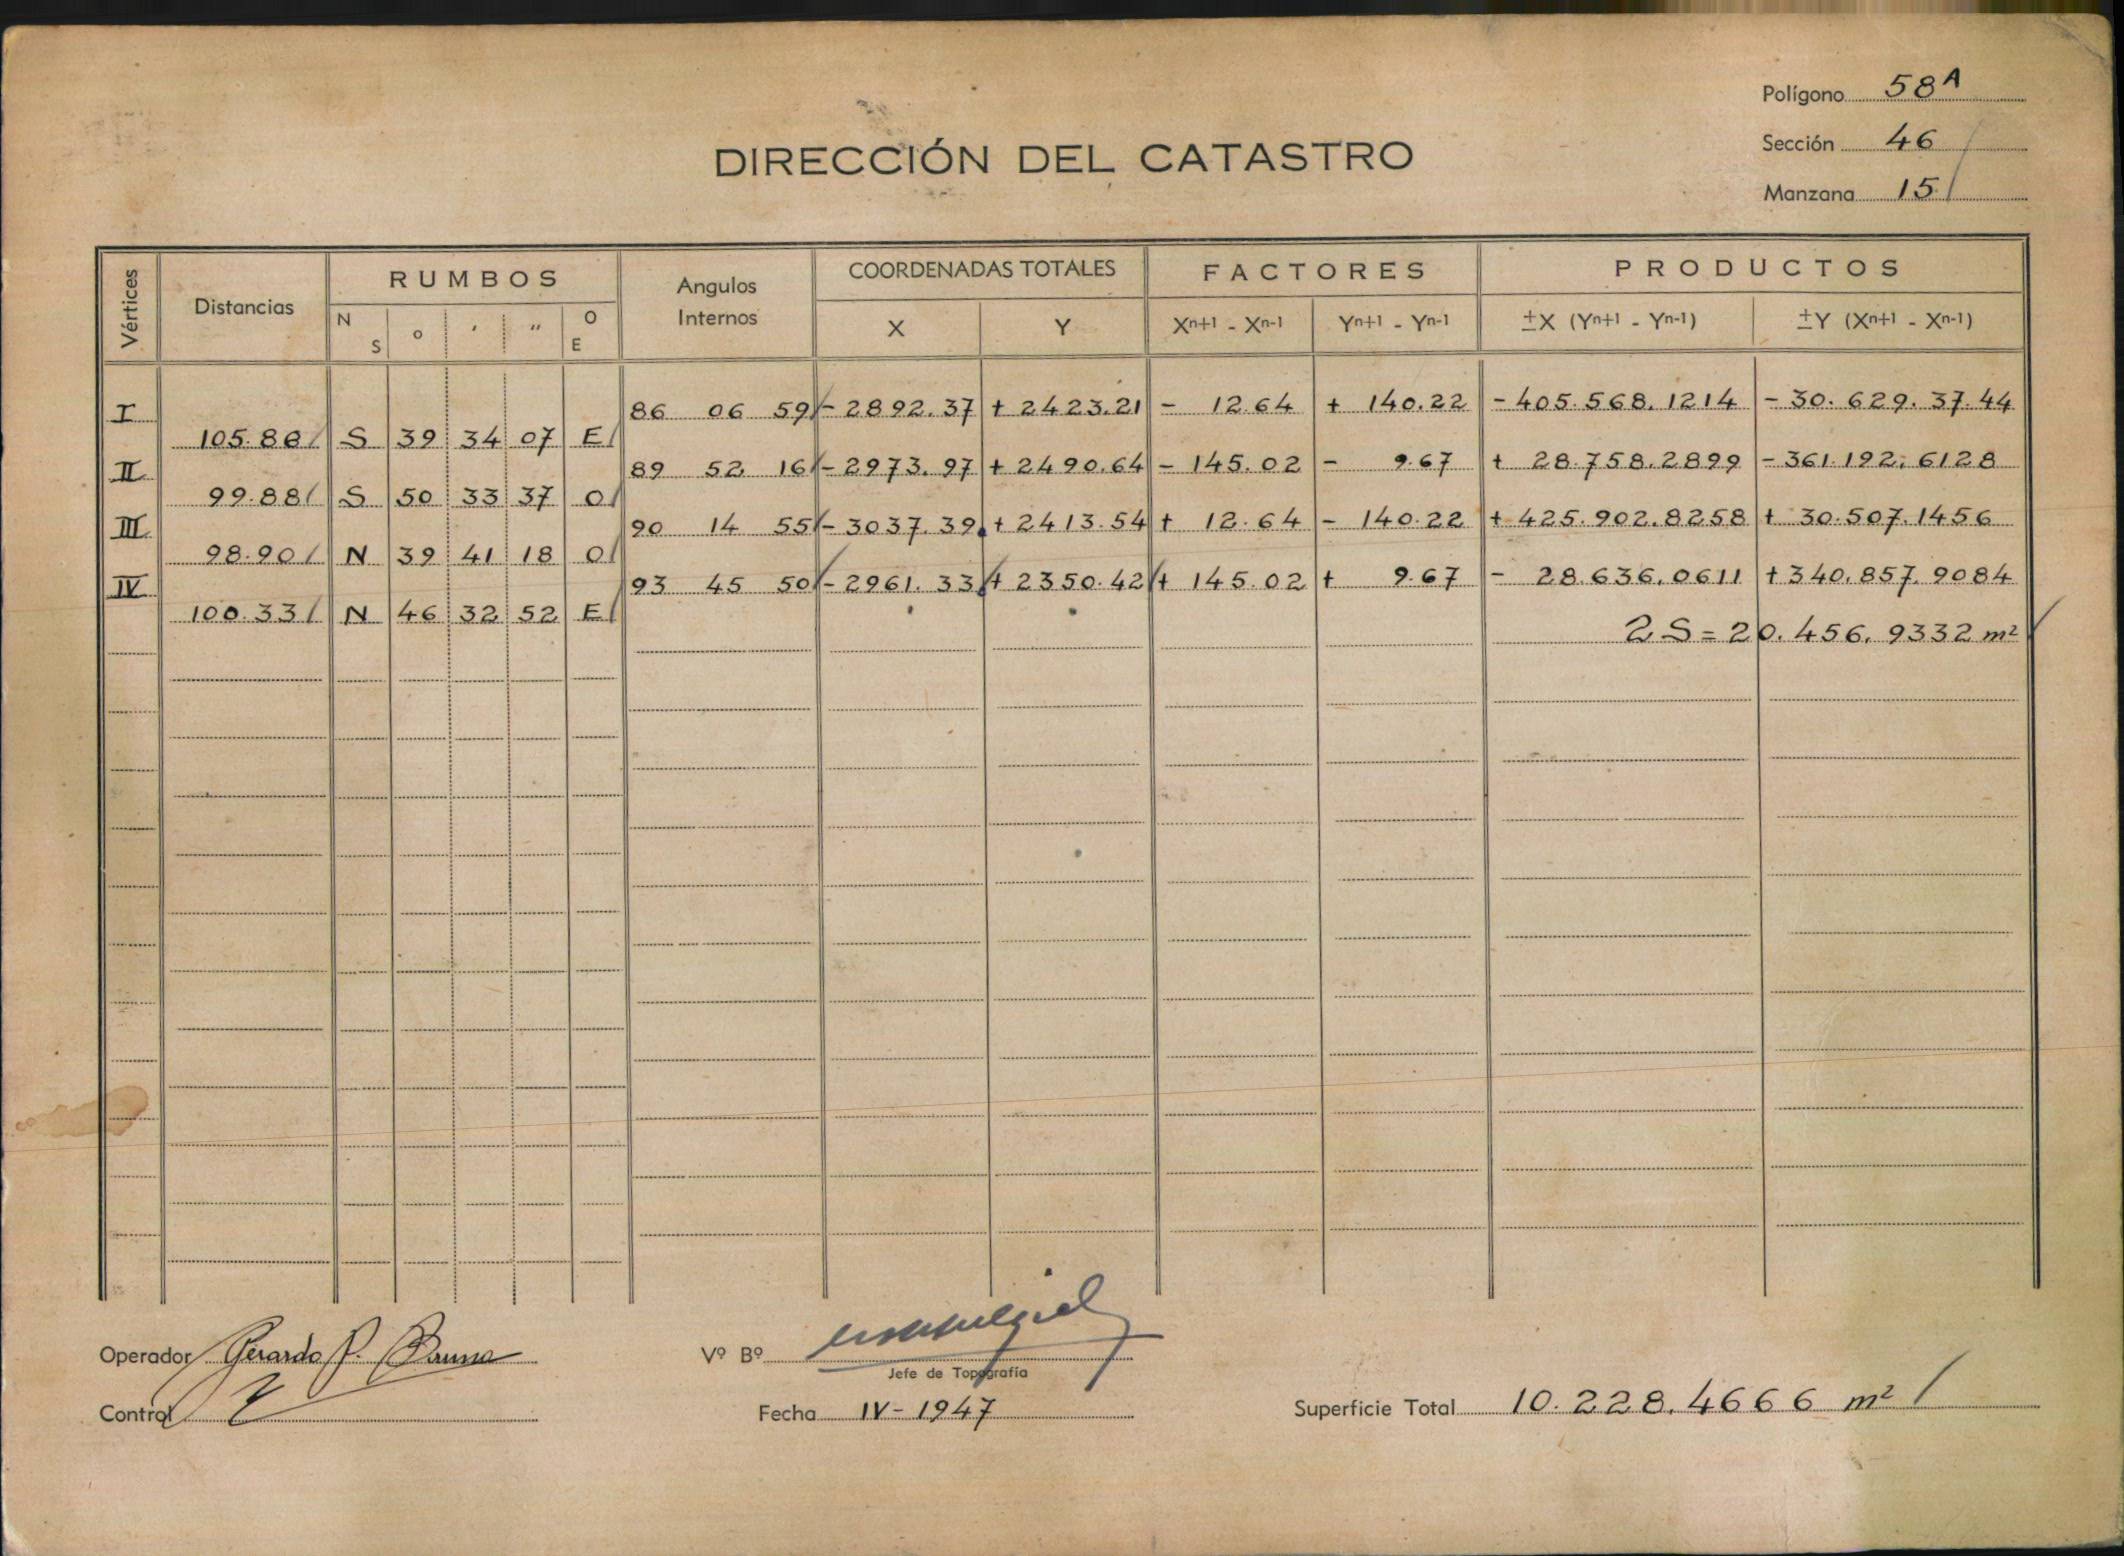 Polígono 58 A
DIRECCIÓN DEL CATASTRO
Sección 46
Manzana 15
Vértices Distancias RUMBOS Angulos Internos COORDENADAS TOTALES FACTORES PRODUCTOS
N S o ' '' O E X Y Xn+1 - Xn-1 Yn+1 - Yn-1 ±X (Yn+1 - Yn-1) ±Y (Xn+1 - Xn-1)
I 86 06 59 - 2892.37 + 2423.21 - 12.64 + 140.22 - 405.568.1214 - 30.629.37.44
105.88 S 39 34 07 E
II 89 52 16 - 2973.97 + 2490.64 - 145.02 - 9.67 + 28.758.2899 - 361.192.6128
99.88 S 50 33 37 O
III 90 14 55 - 3037.39 + 2413.54 + 12.64 - 140.22 + 425.902.8258 + 30.507.1456
98.90 N 39 41 18 O
IV 93 45 50 - 2961.33 + 2350.42 + 145.02 + 9.67 - 28.636.0611 + 340.857.9084
100.33 N 46 32 52 E
2S = 20.456.9332 m²
Operador Gerardo P. Vº Bº
Jefe de Topografía
Control Fecha IV-1947 Superficie Total 10.228.4666 m²